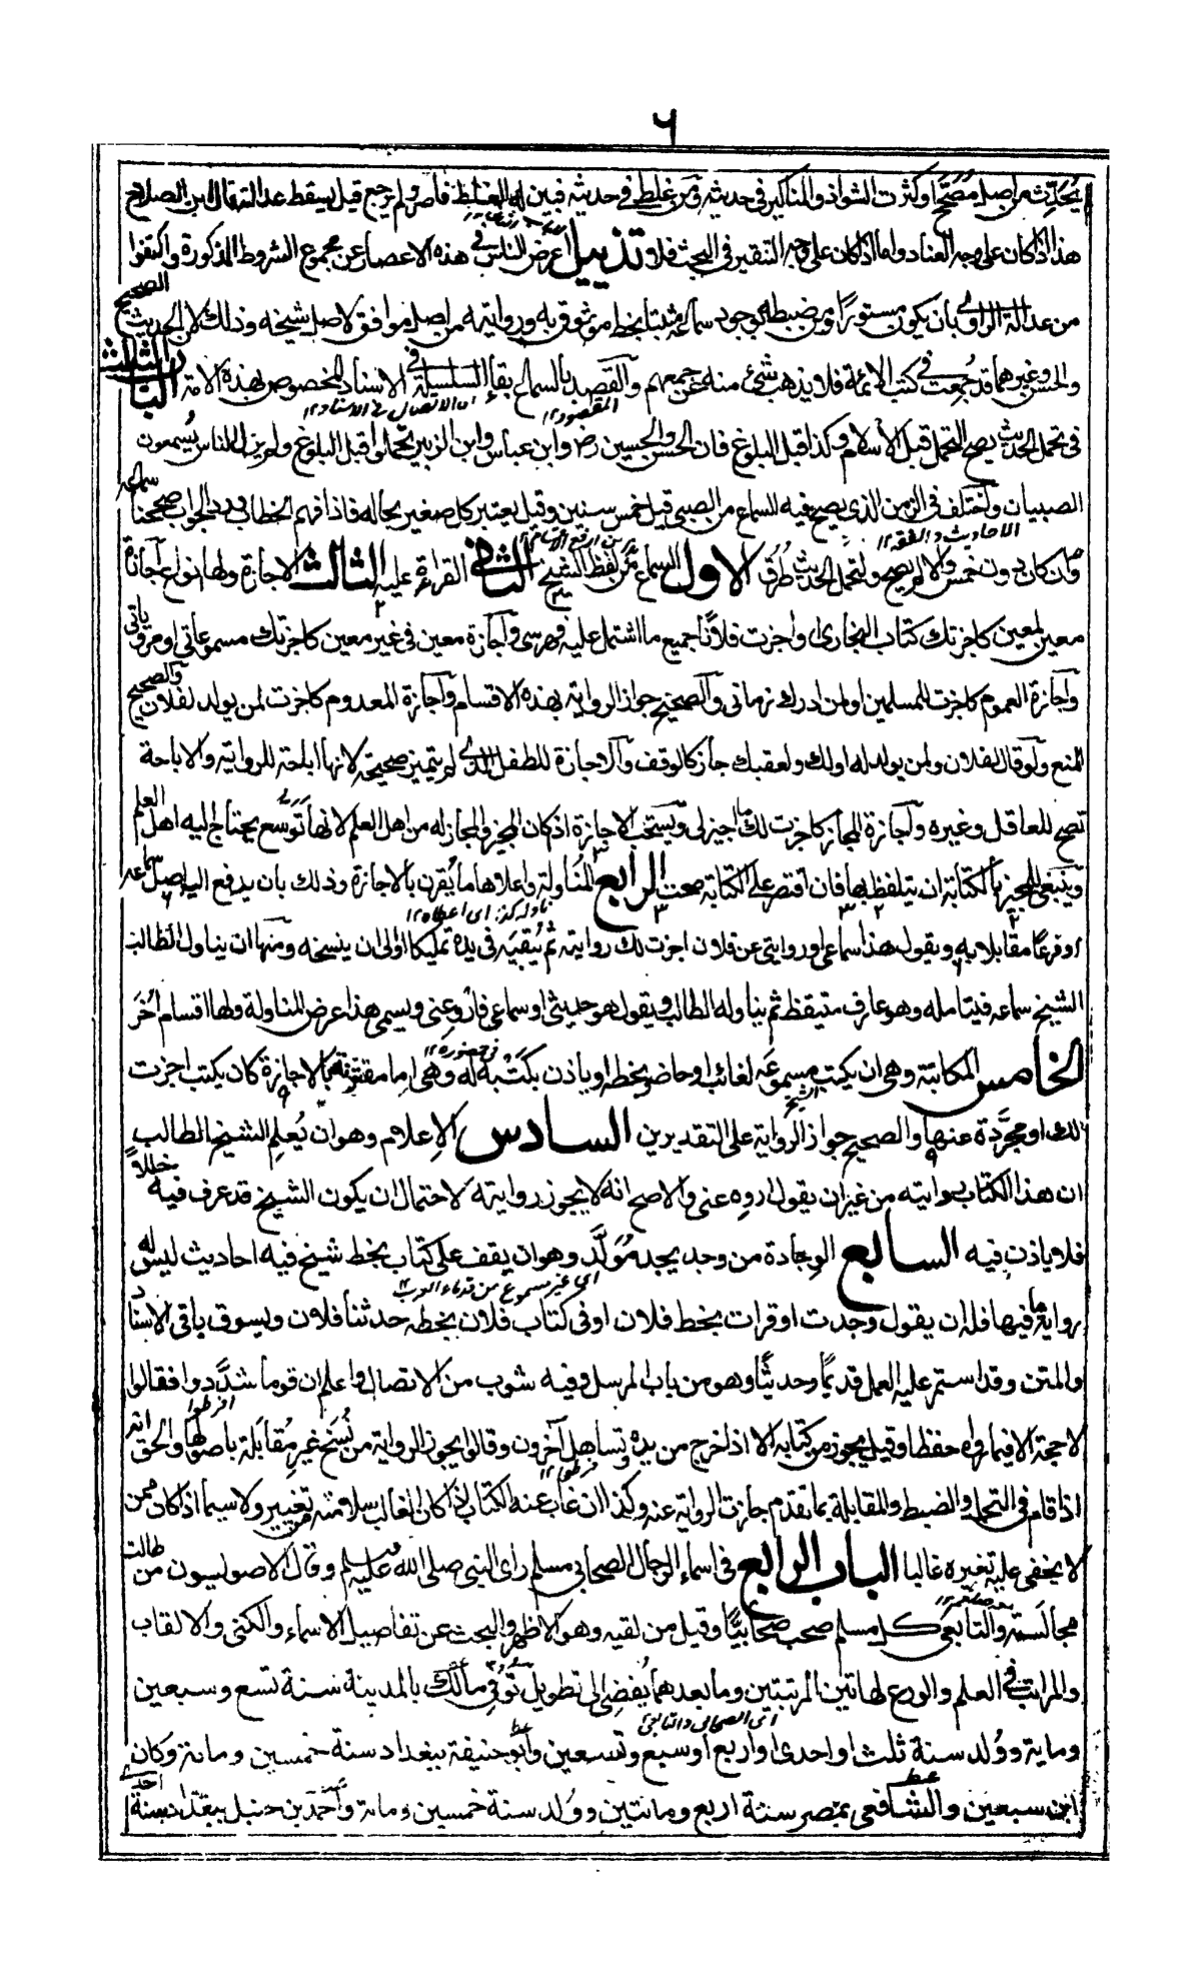 ٦
يُحدِّث من اصل مُصَحَّح او كثرت الشواذ والمناكير فى حديثه ومن غلط فى حديثه فبين له الغلط فاصر ولم يرجع قيل يسقط عدالته قال ابن الصلاح
هذا اذا كان على وجه العناد واما اذا كان على وجه التنقير فى البحث فلا تذييل اعرض الناس فى هذه الاعصار عن مجموع الشروط المذكورة واكتفوا
من عدالة الراوى بان يكون مستورًا ومن ضبطه بوجود سماعه مثبتا بخط موثوق به وروايته من اصل موافق لاصل شيخه وذلك لان الحديث الصحيح
والحسن وغيرهما قد جُمِعت فى كتب الائمة فلا يذهب شئ منه عن جميعهم والقصد بالسماع بقاء السلسلة فى الاسناد المخصوص بهذه الامة الباب الثالث
المقصود١٢ اى الاتصال فى الاسناد١٢
فى تحمل الحديث يصح التحمل قبل الاسلام وكذا قبل البلوغ فان الحسن والحسين رض وابن عباس وابن الزبير تحملوا قبل البلوغ ولم يزل الناس يُسمعون
الصبيان واختلف فى الزمن الذى يصح فيه السماع من الصبى قيل خمس سنين وقيل يعتبر كل صغير بحاله فاذا فهم الخطاب ورد الجواب صححنا سماعه
وان كان دون خمس والا لم يصح ولتحمل الحديث طُرُق الاول السماع من لفظ الشيخ الثانى القراءة عليه الثالث الاجازة ولها انواع اجازة
معين لمعين كاجزتك كتاب البخارى او اجزت فلانًا جميع ما اشتمل عليه فهرسى واجازة معين فى غير معين كاجزتك مسموعاتى او مروياتى
واجازة العموم كاجزت للمسلمين او لمن ادرك زمانى والصحيح جواز الرواية بهذه الاقسام واجازة المعدوم كاجزت لمن يولد لفلان والصحيح
المنع ولو قال لفلان ولمن يولد له او لك ولعقبك جاز كالوقف والاجازة للطفل الذى لم يتميز صحيحة لانها اباحة للرواية والاباحة
تصح للعاقل وغيره واجازة المجاز كاجزت لك ما اجيز لى ويستحب الاجازة اذ كان المجيز والمجاز له من اهل العلم لانها توسع يحتاج اليه اهل العلم
وينبغى للمجيز بالكتابة ان يتلفظ بها فان اقتصر على الكتابة صحت الرابع المُناولة واعلاها ما يُقرن بالاجازة وذلك بان يدفع اليه اصل سماعه
او فرعًا مقابلا به ويقول هذا سماعى او روايتى عن فلان اجزت لك روايته ثم يُبقيَه فى يده تمليكا او الى ان ينسخه ومنها ان يناول الطالب
الشيخ سماعه فيتامله وهو عارف متيقظ ثم يناوله الطالب ويقول هو حديثى او سماعى فاروِ عنى ويسمى هذا عرض المناولة ولها اقسام اُخَر
الخامس المكاتبة وهى ان يكتب مسموعَه لغائب او حاضر بخطه او ياذن بكَتْبه له وهى اما مقترنة بالاجازة كان يكتب اجزت
لك او مجرَّدة عنها والصحيح جواز الرواية على التقديرين السادس الاِعلام وهو ان يُعلِم الشيخ الطالب
ان هذا الكتاب روايته من غير ان يقول اروِه عنى والاصح انه لا يجوز روايته لاحتمال ان يكون الشيخ قد عرف فيه خللاً
فلا ياذن فيه السابع الوِجادة من وجد يجد مُوَلَّد وهو ان يقف على كتاب بخط شيخ فيه احاديث ليس له
اى غير مسموع من قدماء العرب١٢
رواية ما فيها فله ان يقول وجدت او قرات بخط فلان او فى كتاب فلان بخطه حدثنا فلان ويسوق باقى الاسناد
والمتن وقد استمر عليه العمل قديمًا وحديثًا وهو من باب المرسل وفيه شوب من الاتصال واعلم ان قوما شدَّدوا فقالوا
لا حجة الا فيما رواه حفظا وقيل يجوز من كتابه الا اذا خرج من يده وتساهل آخرون وقالوا يجوز الرواية من نُسَخ غيرِ مُقابَلة باصولها والحق انه
اذا قام فى التحمل والضبط والمقابلة بما تقدم جازت الرواية عنه وكذا ان غاب عنه الكتاب اذا كان الغالب سلامته من تغيير ولا سيما اذا كان ممن
لا يخفى عليه تغييره غالبا الباب الرابع فى اسماء الرجال الصحابى مسلم راى النبى صلى الله عليه وسلم وقال الاصوليون من طالت
مجالَسته والتابعى كل مسلم صحب صحابيًّا وقيل من لقيه وهو الاظهر والبحث عن تفاصيل الاسماء والكنى والالقاب
والمراتب فى العلم والورع لهاتين المرتبتين وما بعدهما يُفضى الى تطويل تُوُفِّى مالك بالمدينة سنة تسع وسبعين
اى الصحابى والتابعى
وماية ووُلد سنة ثلث او احدى او اربع او سبع وتسعين وابو حنيفة ببغداد سنة خمسين وماىة وكان
ابن سبعين والشافعى بمصر سنة اربع ومائتين ووُلد سنة خمسين وماىة واحمد بن حنبل ببغداد سنة احدى